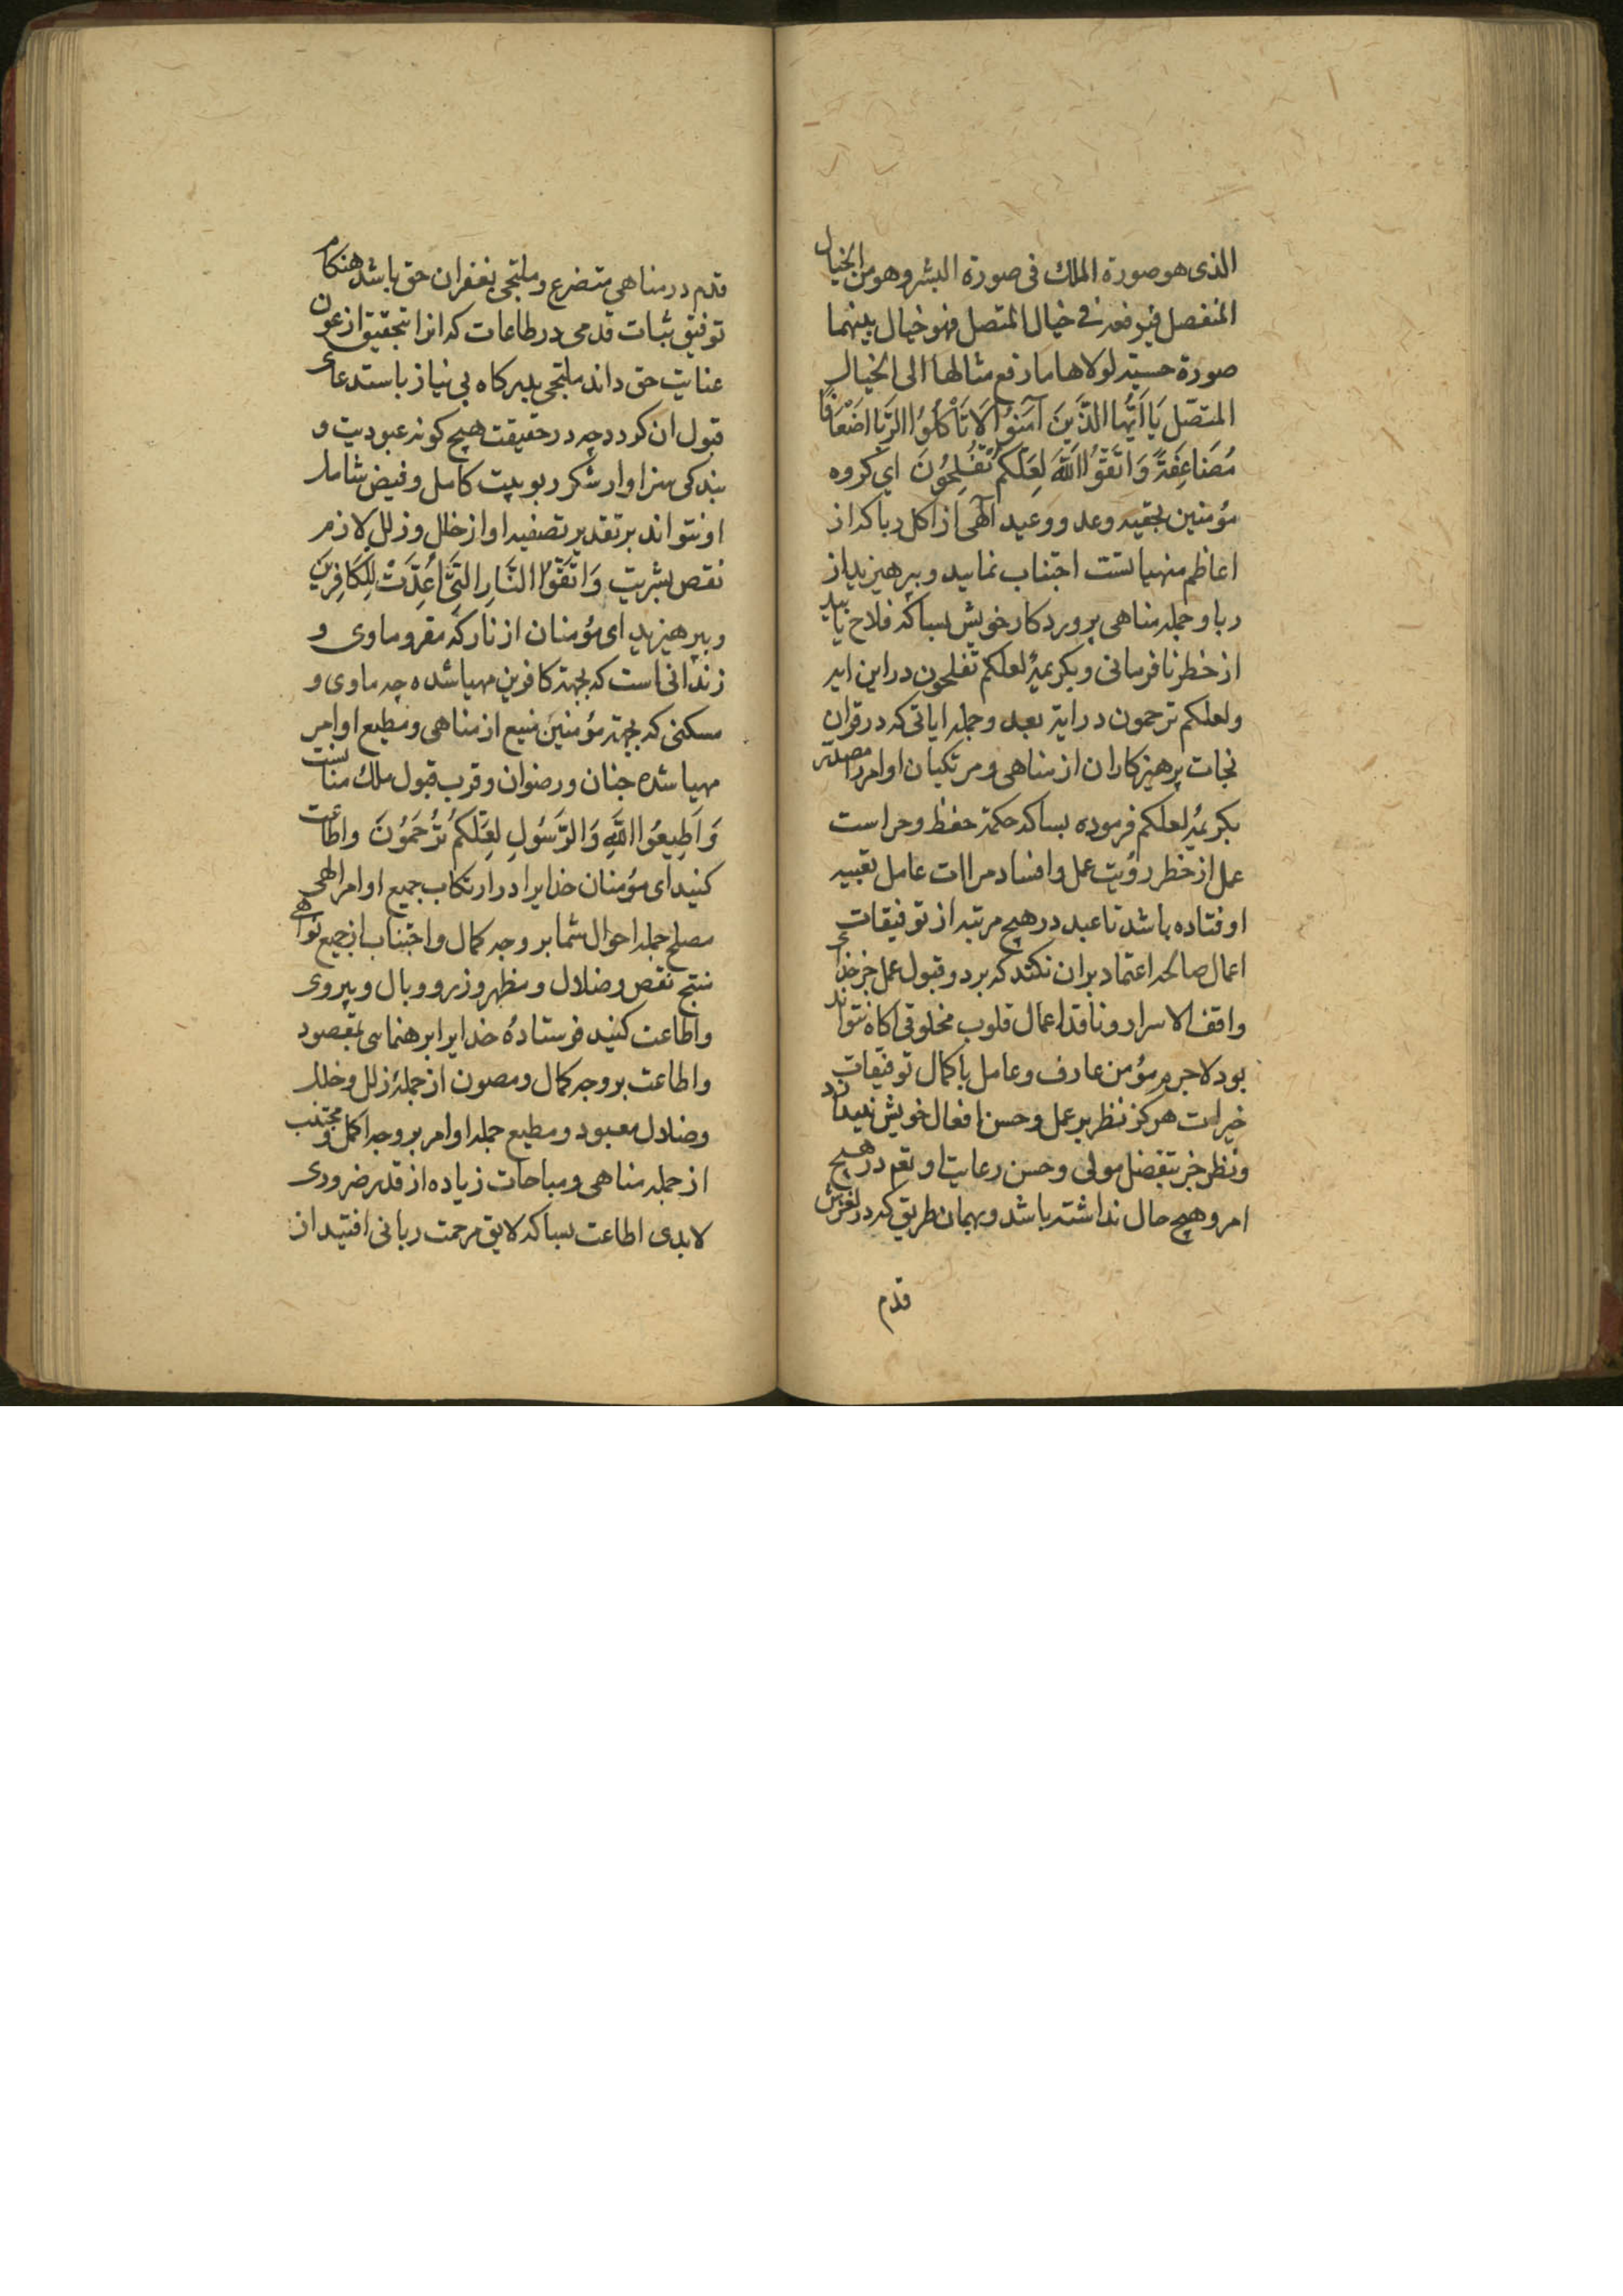 الذی هو صورة الملك فی صورة البشر و هو من الخیال
المنفصل فیرفعه فی خیال المتصل فهو خیال بینهما
صورة حسیة لولاها ما رفع مثالها الی الخیال
المتصّل یَا اَیُّهَا الَّذِینَ آمَنُوُا لَا تَأْکُلوُا الرِّبَا اَضْعَافًا
مُضَاعَفَةً وَاتَّقُوُا اللَّهَ لَعَلَّکُمْ تُفْلِحُونَ ای کروه
مؤمنین بجقیه وعد و وعید آلهی از اکل ربا که از
اعاظم منهیاتست اجتناب نمایید و بپرهیزید از
ربا و جمله مناهی پروردکار خویش بسا که فلاح یابید
از خطر نافرمانی و بکریمهٔ لعلکم تفلحون در این ایه
ولعلکم ترحمون در ایة بعد و جمله ایاتی که در قران
نجات پرهیزکاران از مناهی و مرتکبان اوامر را مصدّر
بکریمهٔ لعلکم فرموده بسا که حکمة حفظ و حراست
عمل از خطر رؤیت عمل و افساد مراات عامل تعبیه
اوفتاده باشد تا عبد در هیچ مرتبه از توفیقات
اعمال صالحه اعتماد بران نکند که برد و قبول عمل جز خدای
واقف الاسرار و ناقد اعمال قلوب مخلوقی اکاه نتواند
بود لاجرم مؤمن عارف و عامل با کمال توفیقات
خیرات هرکز نظر بر عمل و حسن افعال خویش نیندازد
ونظر جز بتفضل مولی و حسن رعایت او تعم در هیچ
امر و هیچ حال نداشته باشد و بهمان طریق که در لغزش
قدم
قدم در مناهی متضرع و ملتجی بغفران حق باشد هنکام
توفیق ثبات قدمی در طاعات که انرا بتحقیق از عون
عنایت حق داند ملتجی بدرکاه بی نیاز باستدعای
قبول ان کردد چه در حقیقت هیچ کونه عبودیت و
بندکی سزاوار شکر ربوبیت کامل و فیض شامل
او نتواند بر تقدیر تصفیه او از خلل و زلل لازم
نقص بشریت وَاتَّقُوُا النَّارَ الَّتِی اُعِدَّتْ لِلکَافِرِینَ
وبپرهیزید ای مؤمنان از نار که مقر و ماوی و
زندانی است که بجهة کافرین مهیا شده چه ماوی و
مسکنی که بجهة مؤمنین منیع از مناهی و مطیع اوامر
مهیا شده جنان و رضوان و قرب قبول ملك منانست
وَاَطِیعُوُا اللَّهَ وَالرَّسُولَ لَعَلَّکُمْ تُرْحَمُوُنَ واطاعت
کنید ای مؤمنان خدایرا در ارتکاب جمیع اوامر الهی
مصلح جمله احوال شما بر وجه کمال و اجتناب از جمیع نواهی
منتج نقص و ضلال و مظهر وزر و وبال و پیروی
واطاعت کنید فرستادهٔ خدایرا برهنمایی بمقصود
واطاعت بر وجه کمال و مصون از جملهٔ زلل و خلل
وضلال معبود و مطیع جمله اوامر بر وجه اکمل و مجتنب
از جمله مناهی و مباحات زیاده از قدر ضروری
لابدی اطاعت بسا که لایق مرحمت ربانی افتید از